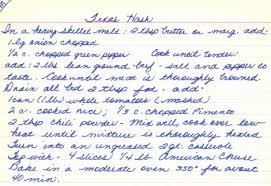 Texas Hash
In a heavy skillet melt: 2 tbsp butter or marg. add:
1 lg onion chopped
1/2 c. chopped green pepper Cook until tender.
add: 2 lbs lean ground beef - salt and pepper to
taste. Cook until meat is thoroughly browned.
Drain all but 2 tbsp fat. add
1 can (1 lb) whole tomatoes (mashed)
2 c. cooked rice; 1/3 c. chopped Pimento
2 tsp chili powder - Mix well, cook over low
heat until mixture is thoroughly heated
Turn into an ungreased 2 qt. casserole
Top with - 4 slices 1/4 lb American Cheese
Bake in a moderate oven 350° for about
40 min.